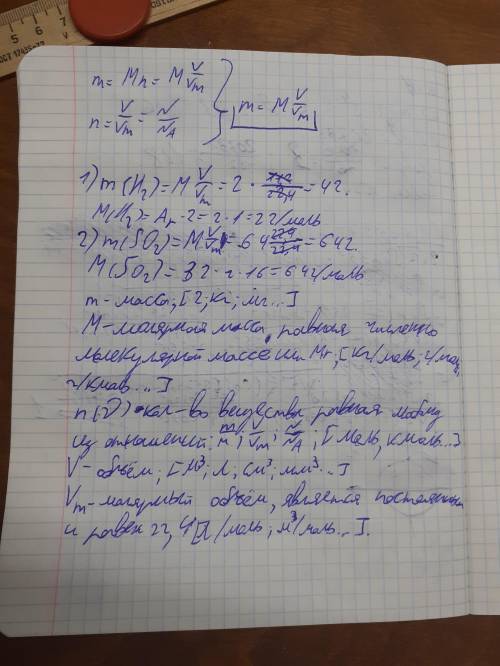 5 6 7
ГОСТ 17435-72
m = Mn = M V/Vm
n = V/Vm = N/NA
m = M V/Vm
1) m(H2) = M V/Vm = 2 · /22,4 = 4г.
M(H2) = Ar · 2 = 2 · 1 = 2г/моль
2) m(SO2) = M V/Vm = 64 22,4/22,4 = 64г.
M(SO2) = 32 · 2 · 16 = 64г/моль
m - масса; [г; кг; мг...]
M - молярная масса, равная численно
молекулярной массе или Mr, [кг/моль, г/моль,
г/кмоль...]
n(ν) кол-во вещества равная любому
из отношений: m/M; V/Vm; N/NA; [моль, кмоль...]
V - объём; [м³, л, см³; мм³...]
Vm - молярный объём, является постоянным
и равен 22,4 [л/моль; м³/моль...].